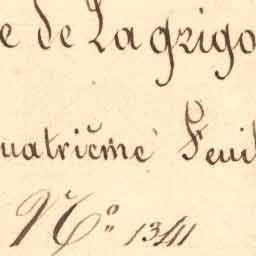 e de Lagrigo
uatrième Feuil
N° 1341